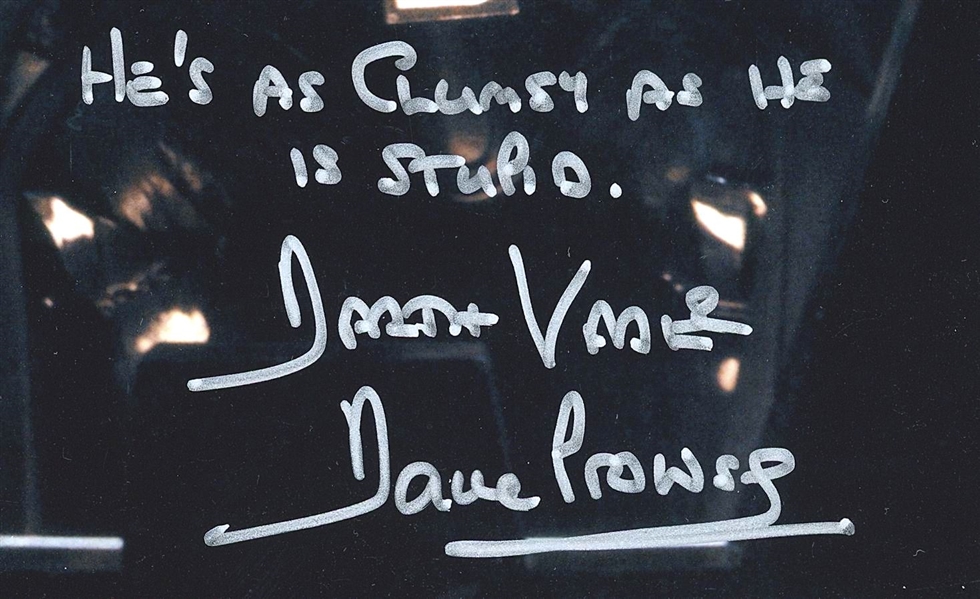 HE'S AS CLUMSY AS HE
IS STUPID.
Darth Vader
Dave Prowse